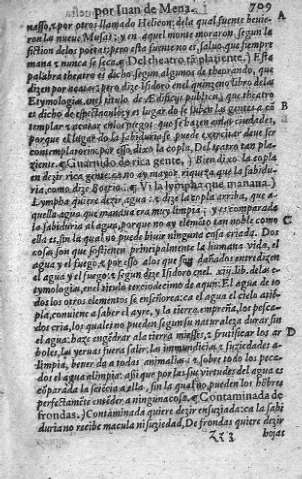 por Iuan de Mena. 709
nasso, τ por otros llamado Helicon: de la qual fuente beuie-
ron las nueue Musas: y en aquel monte moraron segun la
fiction delos poetas: pero esta fuente no es, saluo que siempre
mana τ nunca se seca. ¶ Del theatro tã plaziente.) Esta
palabra theatro es dicho segun algunos de theorando, que
dizen por acatar: pero dize Isidoro enel quinzeno libro dela
Etymologia, enel titulo de Ædificijs publicis, que theatro
es dicho de espectaculo: y es lugar do se suben las gentes a cõ
templar τ acatar enlos juegos que se hazen enlas ciudades,
porque el lugar do la sabiduria se puede exercitar deue ser
contemplatorio: por esso, dixo la copla, Del teatro tan pla-
ziente. ¶ Guarnido de rica gente,) Bien dixo la copla
en dezir rica gente: ca no ay mayor riqueza, que la sabidu-
ria, como dize Boecio. ¶ Vi la lympha que manaua.)
Lympha quiere dezir, agua: τ dize la copla arriba, que a-
quella agua que manaua era muy limpia: y es comparada
la sabiduria al agua, porque no ay elemẽto tan noble como
ella es, sin la qual no puede biuir ninguna cosa criada. Dos
cosas son que sostienen principalmente la humana vida, el
agua y el fuego: τ por esso alos que son dañados entredizen
el agua y el fuego: τ segun dize Isidoro enel .xiij. lib. delas e-
tymologias, enel titulo terciodecimo de aquis: El agua de to
dos los otros elementos se enseñorea: ca el agua el cielo atiẽ-
pla, conuiene a saber el ayre, y la tierra empreña, los pesca-
dos cria, los quales no pueden segun su naturaleza durar sin
el agua: haze engẽdrar ala tierra miesses, τ fructificar los ar
boles, las yeruas fuera salir: la immundicia τ suziedades a-
limpia, beuer da a todas animalias: τ sobre todo los peca-
dos el agua alimpia: assi que por las sus virtudes del agua es
cõparada la sciẽcia a ella, sin la qual no pueden los hõbres
perfectamẽte entẽder a ninguna cosa. ¶ Contaminada de
frondas,) Contaminada quiere dezir ensuziada: ca la sabi
duria no recibe macula ni suziedad, De frondas quiere dezir
hojas
A
B
C
D